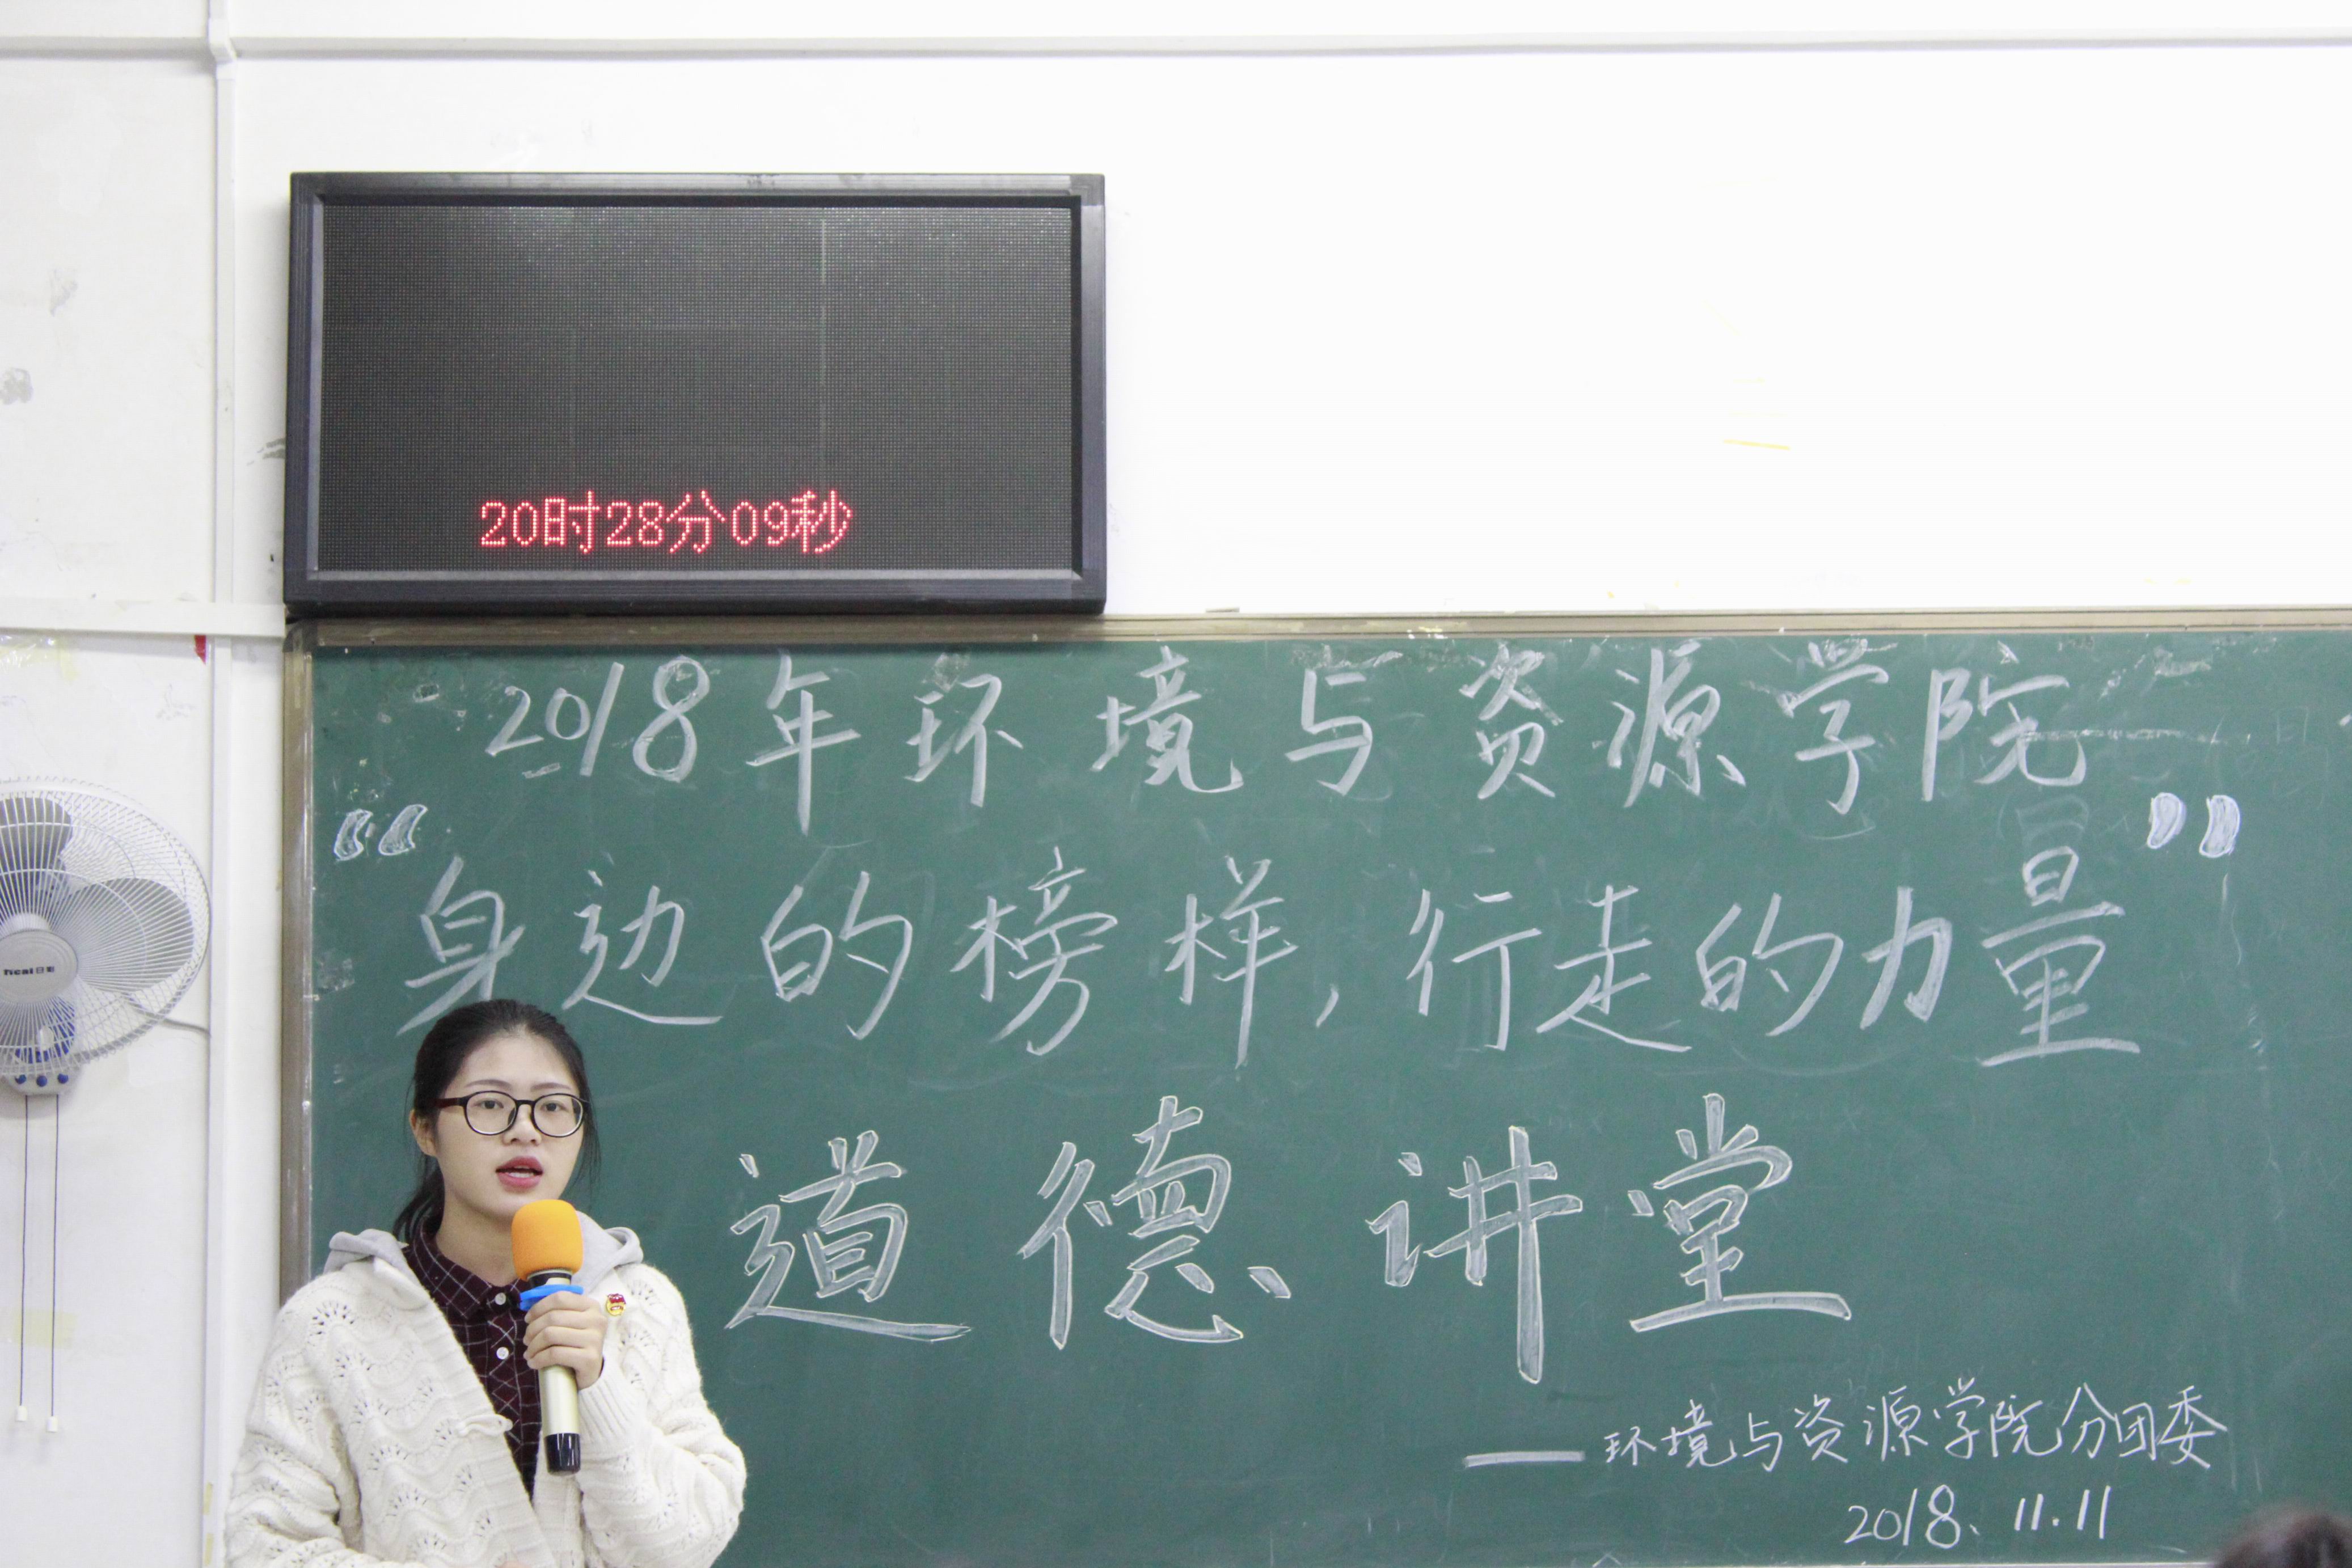 20时28分09秒
2018年环境与资源学院
“身边的榜样,行走的力量”
道德讲堂
——环境与资源学院分团委
2018.11.11